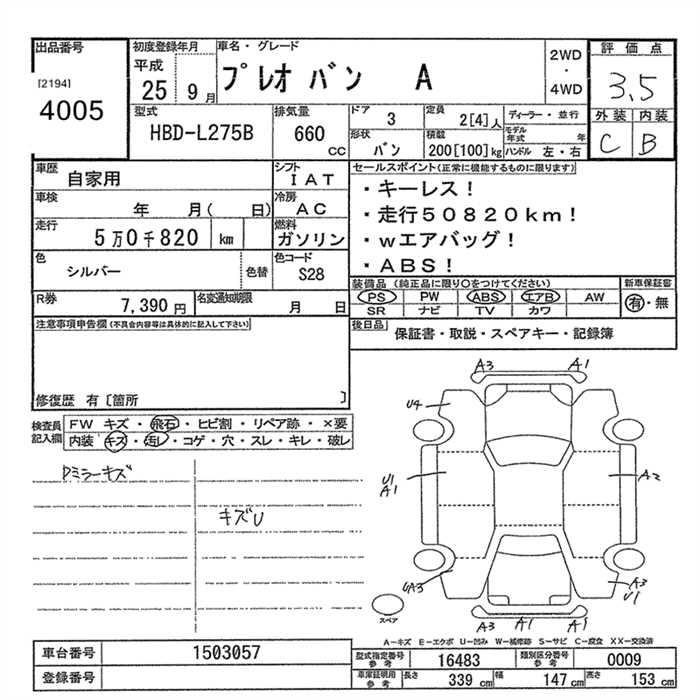 出品番号
[2194]
4005
初度登録年月
平成
25 9月
車名・グレード
プレオ バン A
2WD
・
4WD
評価点
3.5
外装 内装
C B
型式
HBD-L275B
排気量
660
CC
ドア
3
定員
2[4]人
形状
バン
積載
200[100]kg
ディーラー・並行
モデル年式 年
ハンドル 左・右
車歴
自家用
シフト
IAT
車検
年 月( 日)
冷房
AC
走行
5万0千820 km
燃料
ガソリン
色
シルバー
色替
色コード
S28
R券
7,390円
名変通知期限
月 日
セールスポイント(正常に機能するものに限ります)
・キーレス!
・走行50820km!
・wエアバッグ!
・ABS!
装備品 (純正品に限り○をつけてください)
新車保証書
PS PW ABS エアB AW
有・無
SR ナビ TV カワ
後日品
保証書・取説・スペアキー・記録簿
注意事項申告欄(不具合内容等は具体的に記入して下さい)
修復歴 有〔箇所 〕
検査員
記入欄
FW キズ・飛石・ヒビ割・リペア跡・×要
内装 キズ・汚レ・コゲ・穴・スレ・キレ・破レ
Dミラーキズ
キズU
A3 A1
U4
U1
A1
A2
UA3
A3
U1
A3 A1 A1
スペア
A−キズ E−エクボ U−凹み W−補修跡 S−サビ C−腐食 XX−交換済
車台番号
1503057
登録番号
型式指定番号
参考
16483
類別区分番号
参考
0009
車庫証明用
参考
長さ 339 cm 幅 147 cm 高さ 153 cm